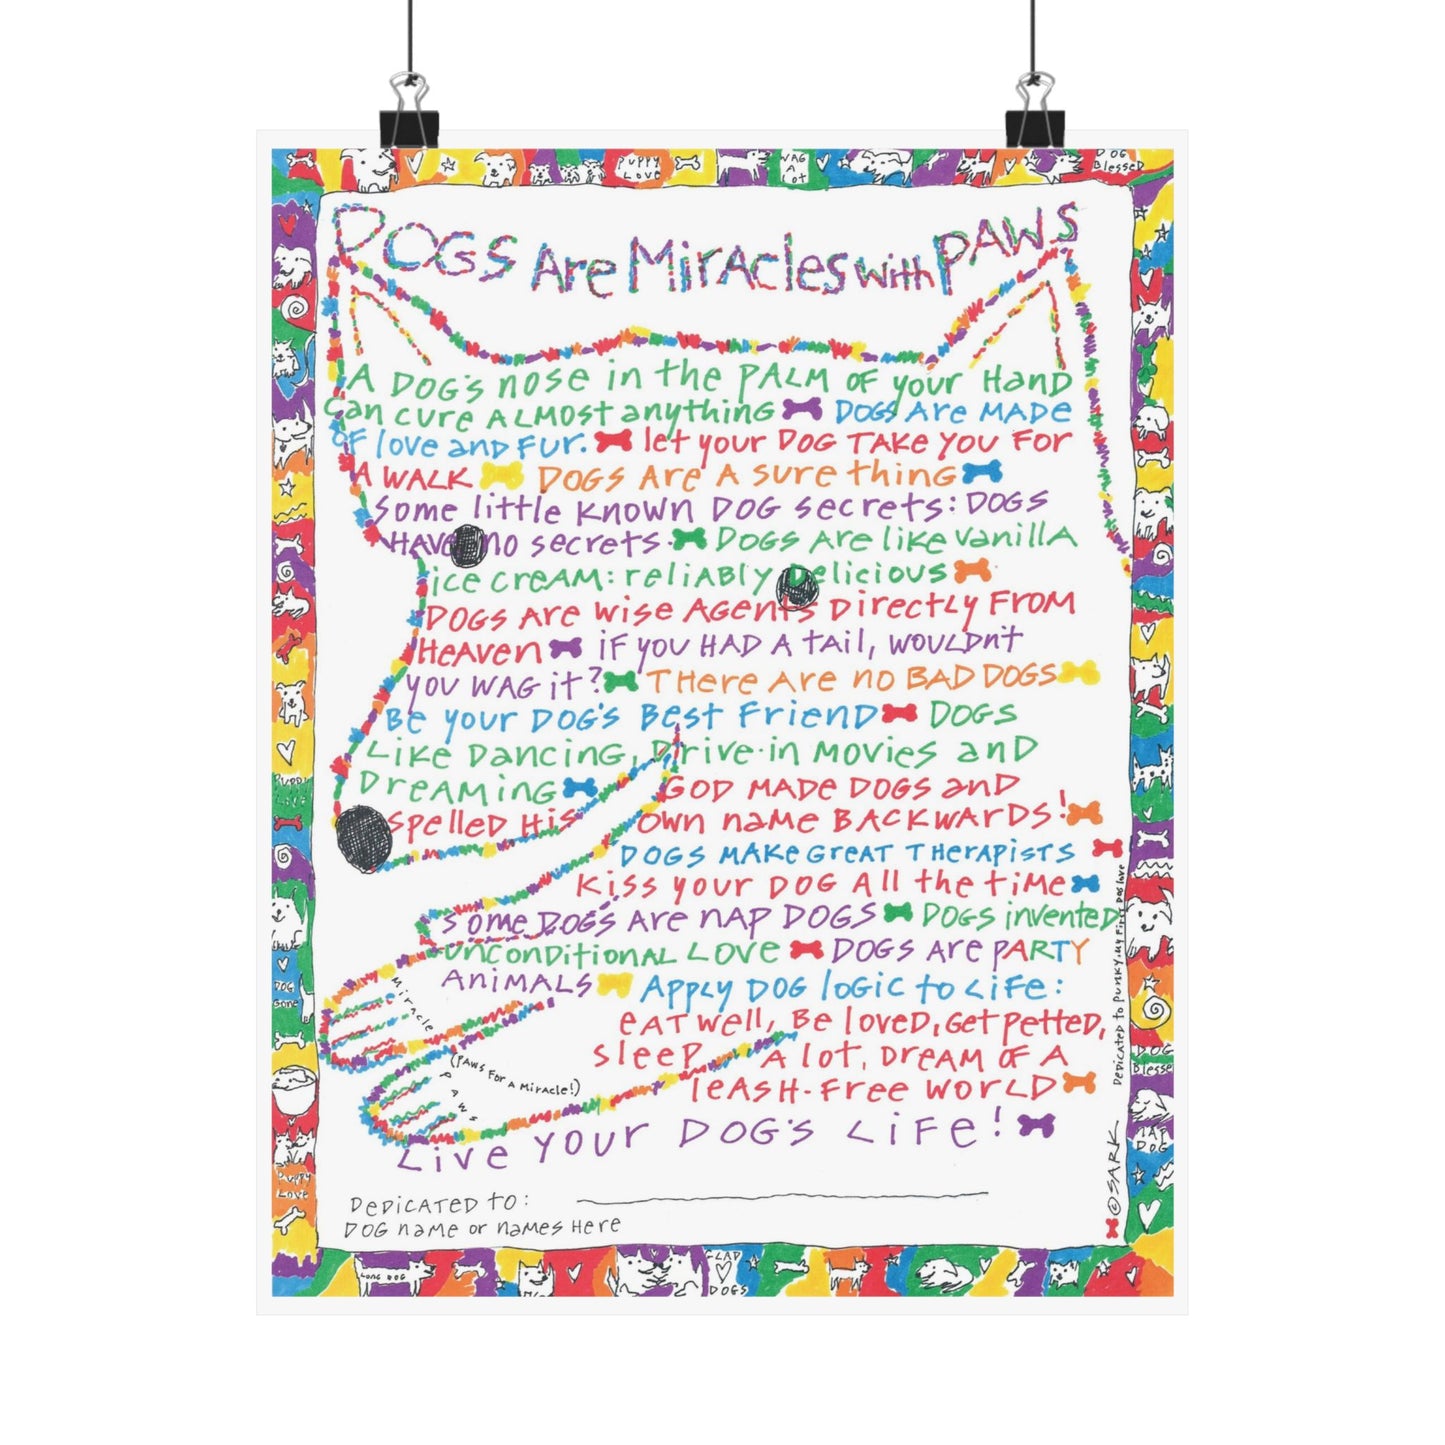 PUPPY LOVE
WAG A LOT
DOG Blessed
DOGS Are Miracles with PAWS
A DOG'S nose in the PALM OF your HanD
Can cure ALMOST anything DOGS Are MADE
OF love and FUR. let your DOG TAKE YOU FOR
A WALK DOGS Are A Sure thing
Some little known DOG secrets: DOGS
HAVE no secrets. DOGS Are like vanilla
ice cream: reliably Delicious
DOGS Are wise Agents Directly From
Heaven if you HAD A tail, wouldn't
you wag it? There Are no BAD DOGS
Be your DOG'S Best Friend DOGS
Like Dancing, Drive-in Movies and
Dreaming GOD MADE DOGS and
Spelled His own name BACKWARDS!
DOGS MAKe Great Therapists
Kiss your DOG All the time
Some DOGS Are nap DOGS DOGS invented
unconditional LOVE DOGS Are PARTY
Animals Apply DOG logic to Life:
eat well, Be loved, Get petted,
Sleep A lot, Dream of A
leash-Free World
Live your DOG'S Life!
Miracle
PAWS
(PAWS For A Miracle!)
Dedicated to: 
DOG name or names Here
Dedicated to Punky, my First Dog love
©SARK
DOG Gone
Puppy Love
Long Dog
GLAD DOGS
LAP DOG